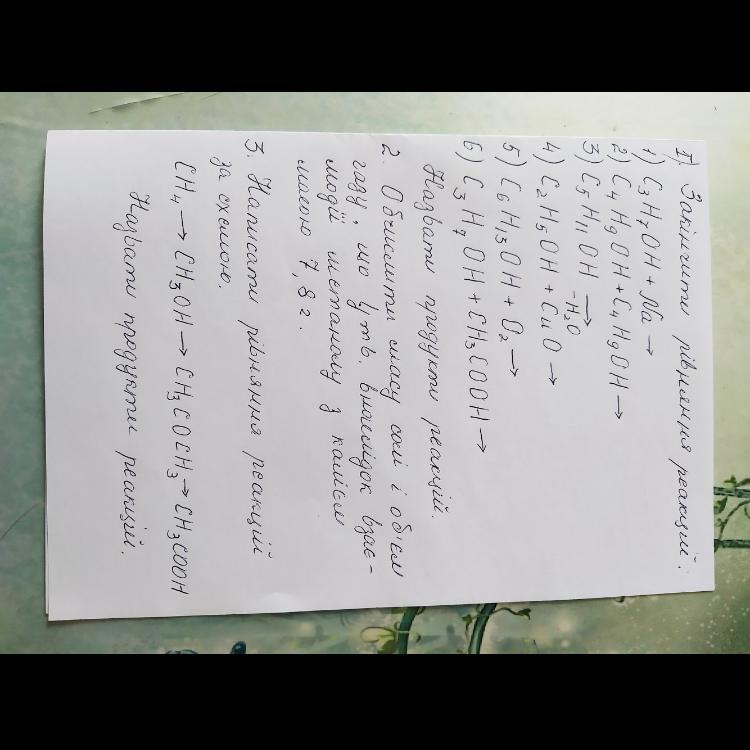 I. Закінчити рівняння реакцій:
1) C₃H₇OH + Na →
2) C₄H₉OH + C₄H₉OH →
3) C₅H₁₁OH –H₂O →
4) C₂H₅OH + CuO →
5) C₆H₁₃OH + O₂ →
6) C₃H₇OH + CH₃COOH →
Назвати продукти реакцій.
2. Обчислити масу солі і об'єм
газу, що утв. внаслідок взає-
модії метанолу з калієм
масою 7,8 г.
3. Написати рівняння реакцій
за схемою.
CH₄ → CH₃OH → CH₃COCH₃ → CH₃COOH
Назвати продукти реакцій.